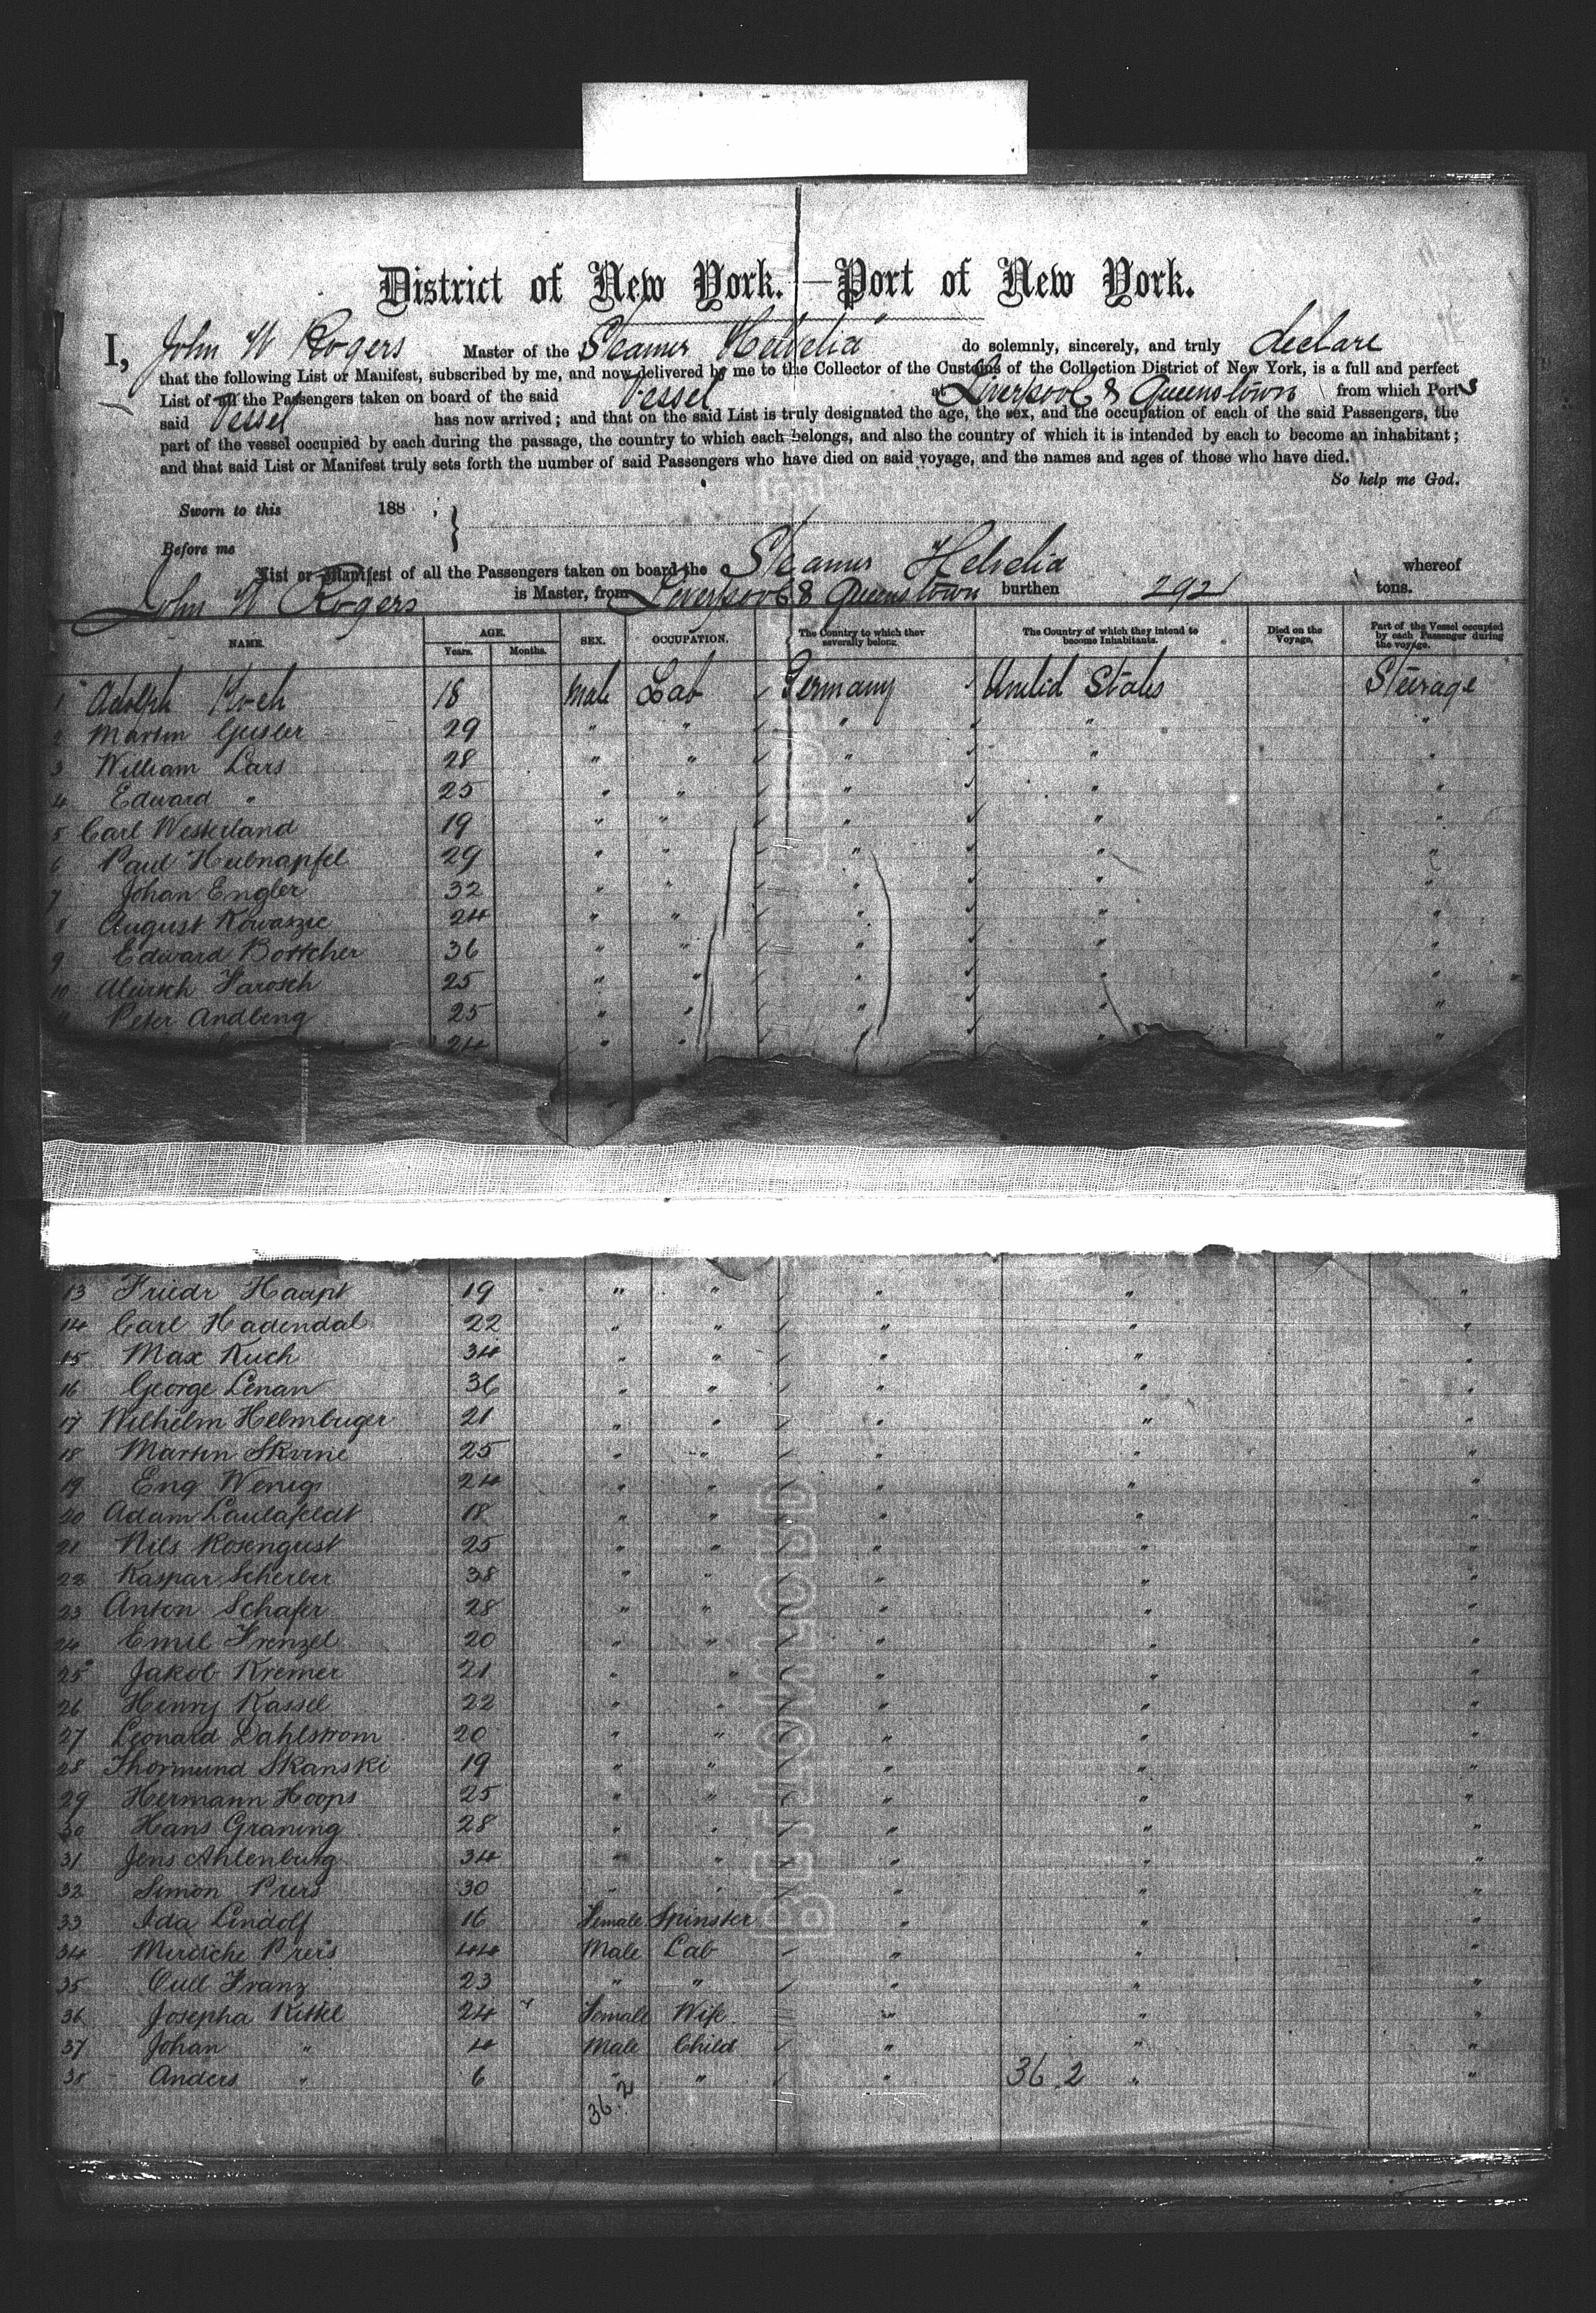 District of New York.—Port of New York.
I, John W Rogers Master of the Steamer Helvetia do solemnly, sincerely, and truly declare
that the following List or Manifest, subscribed by me, and now delivered by me to the Collector of the Customs of the Collection District of New York, is a full and perfect
List of all the Passengers taken on board of the said Vessel at Liverpool & Queenstown from which Ports
said Vessel has now arrived; and that on the said List is truly designated the age, the sex, and the occupation of each of the said Passengers, the
part of the vessel occupied by each during the passage, the country to which each belongs, and also the country of which it is intended by each to become an inhabitant;
and that said List or Manifest truly sets forth the number of said Passengers who have died on said voyage, and the names and ages of those who have died.
So help me God.
Sworn to this 188 ;
Before me
List or Manifest of all the Passengers taken on board the Steamer Helvetia whereof
John W Rogers is Master, from Liverpool & Queenstown burthen 2921 tons.
NAME. AGE. Years. Months. SEX. OCCUPATION. The Country to which they severally belong. The Country of which they intend to become Inhabitants. Died on the Voyage. Part of the Vessel occupied by each Passenger during the voyage.
1 Adolph Koch 18 Male Lab Germany United States Steerage
2 Martin Geisler 29 " " " " "
3 William Lars 28 " " " " "
4 Edward " 25 " " " " "
5 Carl Westerland 19 " " " " "
6 Paul Hubnapfel 29 " " " " "
7 Johan Engler 32 " " " " "
8 August Kowaszic 24 " " " " "
9 Edward Bottcher 36 " " " " "
10 Farosch 25 " " " " "
11 Peter Andberg 25 " " " " "
24 " " " "
13 Friedr Haupt 19 " " " " "
14 Carl Hadendal 22 " " " " "
15 Max Kuch 34 " " " " "
16 George Lenan 36 " " " " "
17 Wilhelm Helmbuger 21 " " " " "
18 Martin Skrine 25 " " " " "
19 Eng Wenigs 24 " " " " "
20 Adam Laulafeldt 18 " " " " "
21 Nils Rosengust 25 " " " " "
22 Kaspar Scherber 38 " " " " "
23 Anton Schafer 28 " " " " "
24 Emil Frenzel 20 " " " " "
25 Jakob Kremer 21 " " " " "
26 Henry Kassel 22 " " " " "
27 Leonard Dahlstrom 20 " " " " "
28 Thormund Skanski 19 " " " " "
29 Hermann Hoops 25 " " " " "
30 Hans Graning 28 " " " " "
31 Jens Ahlenburg 34 " " " " "
32 Simon Preis 30 " " " " "
33 Ida Lindolf 16 Female Spinster " " "
34 Preis 44 Male Lab " " "
35 Franz 23 " " " " "
36 Josepha Kittel 24 Female Wife " " "
37 Johan " 4 Male Child " " "
38 Anders " 6 " " " 36.2 " "
36.2